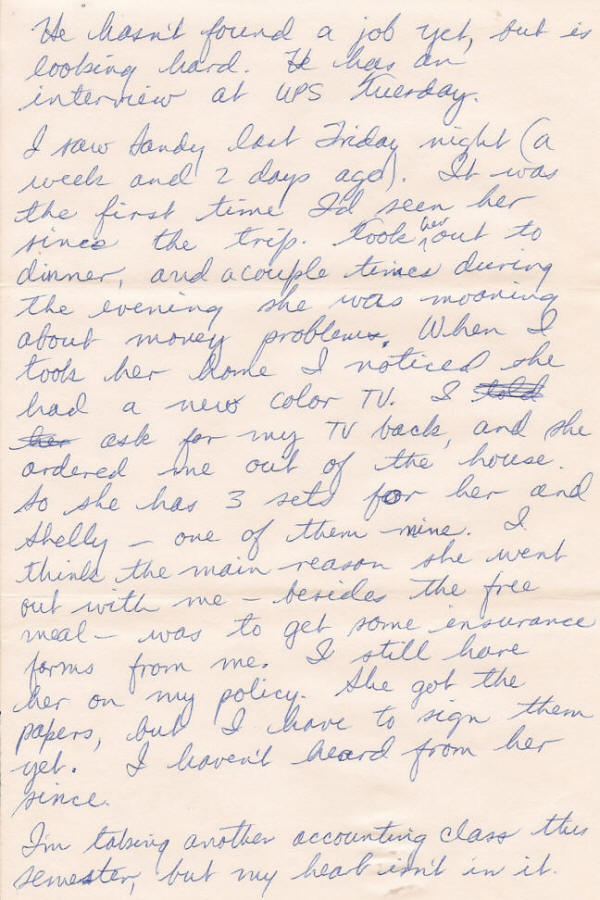 He hasn't found a job yet, but is
looking hard. He has an
interview at UPS Tuesday.
I saw Sandy last Friday night (a
week and 2 days ago). It was
the first time I'd seen her
since the trip. Took her out to
dinner, and a couple times during
the evening she was moaning
about money problems. When I
took her home I noticed she
had a new color TV. I told
her ask for my TV back, and she
ordered me out of the house.
So she has 3 sets for her and
Shelly – one of them mine. I
think the main reason she went
out with me – besides the free
meal – was to get some insurance
forms from me. I still have
her on my policy. She got the
papers, but I have to sign them
yet. I haven't heard from her
since.
I'm taking another accounting class this
semester, but my heart isn't in it.